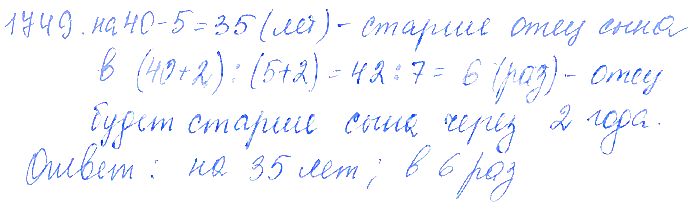 1749. на 40-5=35 (лет) - старше отец сына
в (40+2):(5+2)=42:7=6 (раз) - отец
будет старше сына через 2 года.
Ответ: на 35 лет; в 6 раз